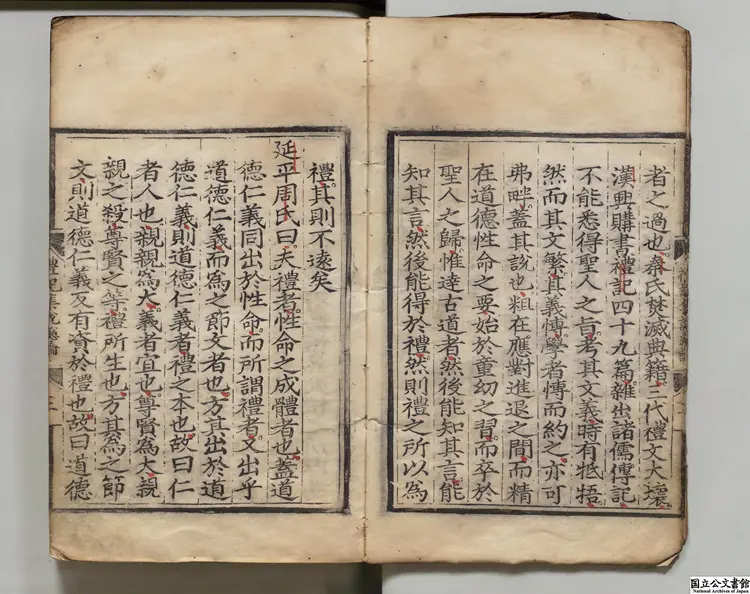 者之過也秦氏焚滅典籍三代禮文大壞
漢興購書禮記四十九篇雜出諸儒傳記
不能悉得聖人之旨考其文義時有牴牾
然而其文繁其義博學者博而約之亦可
弗畔蓋其說也粗在應對進退之間而精
在道德性命之要始於童幼之習而卒於
聖人之歸惟達古道者然後能知其言能
知其言然後能得於禮然則禮之所以為
禮其則不遠矣
延平周氏曰夫禮者性命之成體者也蓋道
德仁義同出於性命而所謂禮者又出乎
道德仁義而為之節文者也方其出於道
德仁義則道德仁義者禮之本也故曰仁
者人也親親為大義者宜也尊賢為大親
親之殺尊賢之等禮所生也方其為之節
文則道德仁義反有資於禮也故曰道德
禮記集說總論
二
国立公文書館
National Archives of Japan